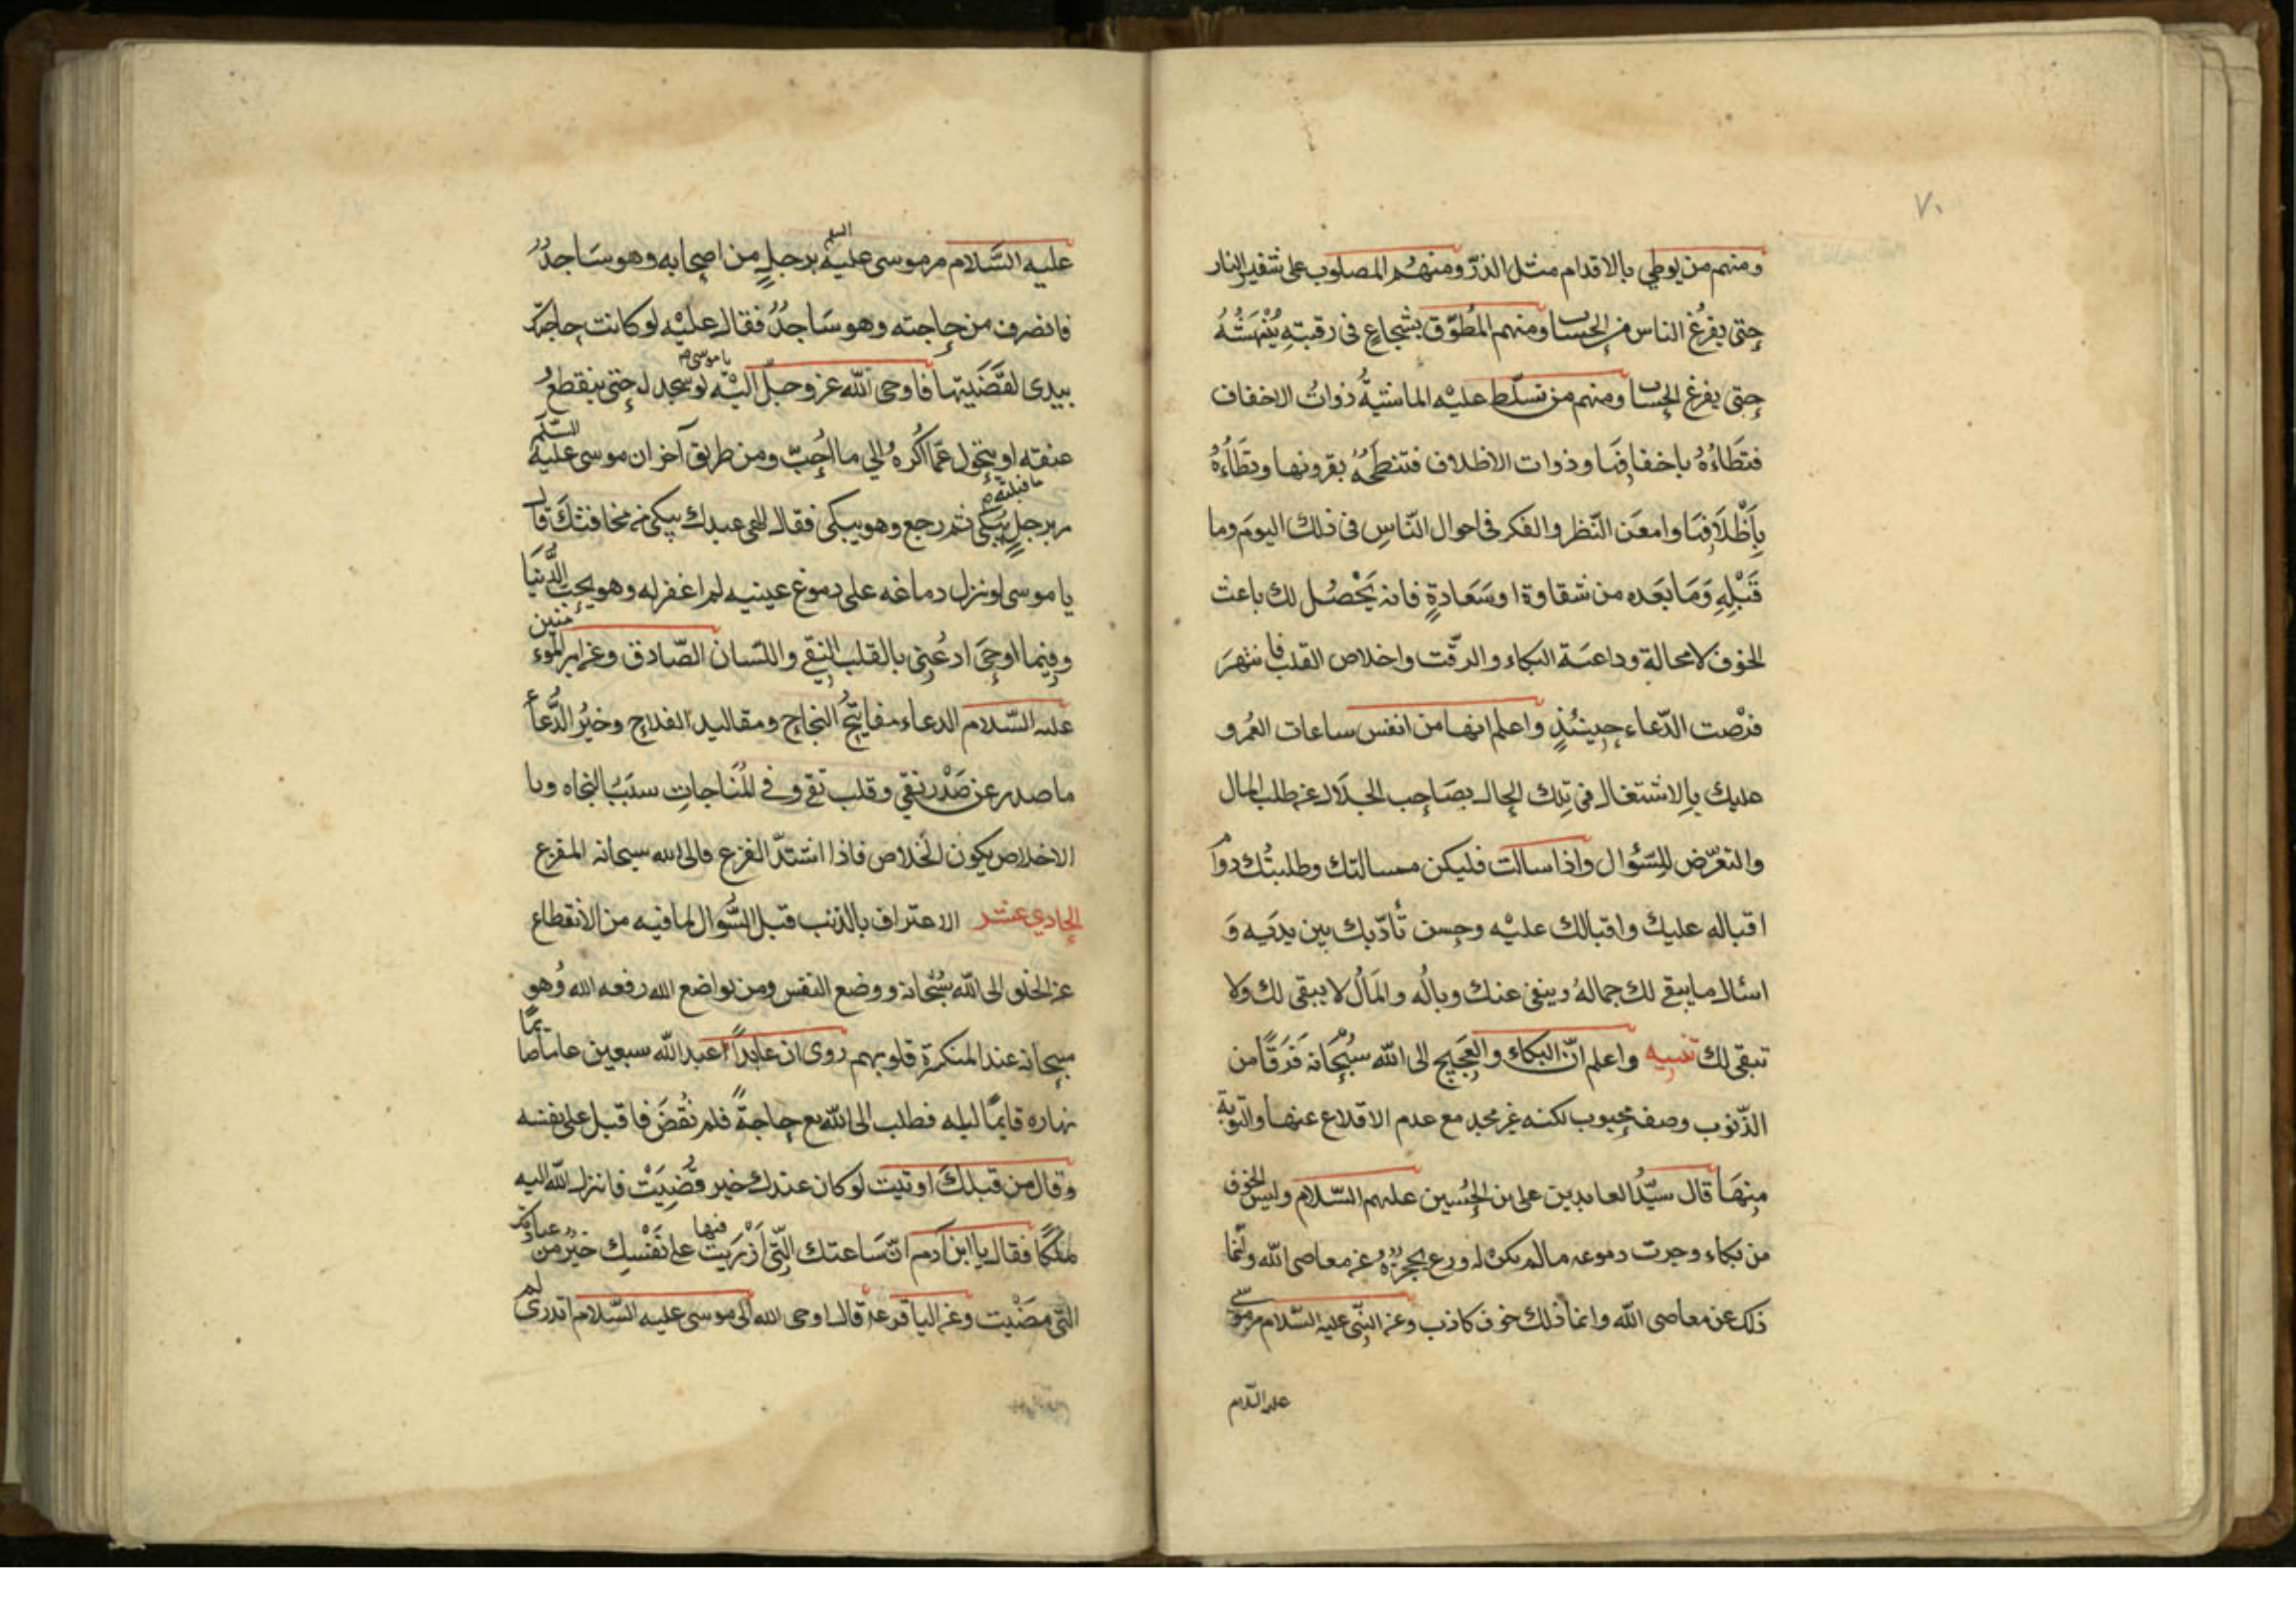 ٧٠
ومنهم من يوطي بالاقدام مثل الذرّ ومنهم المصلوب على شفير النار
حتى يفرُغ الناس من الحساب ومنهم المُطوّق بشجاعٍ فى رقبتهِ يَنْهَشُهُ
حتى يفرغ الحساب ومنهم من تسلّط عليْه الماشيةُ ذواتُ الاخفاف
فتَطَاءُهُ باخفافِها وذوات الاظلاف فتنطحُهُ بقرونها وتطَاءُهُ
بِاَظْلَافِها وامعَن النّظر والفكر فى احوال النّاسِ فى ذلك اليومَ وما
قَبْلِهِ وَمَا بَعَده من شقاوة او سَعَادةٍ فانه يَحْصُل لك باعث
الخوف لا محالة وداعية البكاء والرقّت واخلاص القلب فانتهزَ
فرْصت الدّعاء حينئذٍ واعلم انها من انفس ساعات العُمر و
عليك بِالاشتغال فى تِلك الحال بصَاحِب الجلال عن طلب المال
والتعرّض للسّؤال واذا سالت فليكن مسالتك وطلبتُك دوام
اقباله عليك واقبالك عليْه وحسن تأدّبك بين يديَه وَ
اسئال ما يبقى لك جمالهُ وينفى عنك وبالُه والمَالُ لا يبقى لك ولا
تبقى لك تنبيه واعلم انّ البكاء والعَجيج الى الله سُبْحانه فَرَقًا من
الذّنوب وصف محبوب لكنه غير مجد مع عدم الاقلاع عنها والتوبة
مِنهَا قال سيّدُ العابدين على بن الحُسين عليهم السّلام وليس الخوف
من بكاء وجرت دموعه مالم يكن له ورع يحجزه عن معاصى الله وانّما
ذلك عن معاصى الله وانما ذلك خوف كاذب وعن النبّى عليه السّلام مر موسى
عليه السّلام
عليه السَّلام مر موسى عليه السلم برجلٍ من اصحابه وهو سَاجدٌ
فانصرف من حاجته وهو سَاجدٌ فقال عليْه لو كانت حاجتك
بيدى لقَضَيتها فاوحى الله عز وجلّ اليْه يا موسى لو سجد لى حتى ينقطع
عنقه او يتحول عمّا اكْره الى ما اُحِبّ ومن طريق آخر ان موسى عليه السّلم
مر برجلٍ يبكى ثم رجع وهو يبكى فقال الهى عبدك يبكى من مخافتك قال
يا موسى لو نزل دماغه على دموع عينيه لم اغفر له وهو يحب الدُّنيَا
وفيما اوحِىَ ادعُنِى بالقلب النِقى واللسان الصّادق وعن امير المؤمنين
عليه السّلام الدعاء مفاتيحُ النجاح ومقاليد الفلاح وخيْرُ الدُّعاء
ما صدر عن صَدْر نقى وقلب تقى وفى المُناجاتِ سَبَبُ النجاه وبا
الاخلاص يكون الخلاص فاذا اشتدّ الفزع فالى الله سبحانه المفزع
الحادى عشر الاعتراف بالذنب قبل السُّوال لما فيه من الانقطاع
عن الخلق الى الله سُبْحانه ووضع النفس ومن تواضع الله رفعه الله وُهو
سبحانه عند المنكسرة قلوبهم روى ان عابداً عبد الله سبعين عاما صايمًا
نهاره قايمًا ليله فطلب الى الله تع حاجةً فلم تُقضَ فاقبل على نفسه
وقال من قبلكَ اوتيت لو كان عندك خير قُضِيَتْ فانزل الله اليه
ملكًا فقال يا ابن آدم انّ سَاعتك الّتى اَزْرَيت فيها على نَفْسِك خيْرٌ من عبادتك
التّى مضَيْت وعن الباقر ع قال اوحى الله الى موسى عليه السّلام اتدرى لم